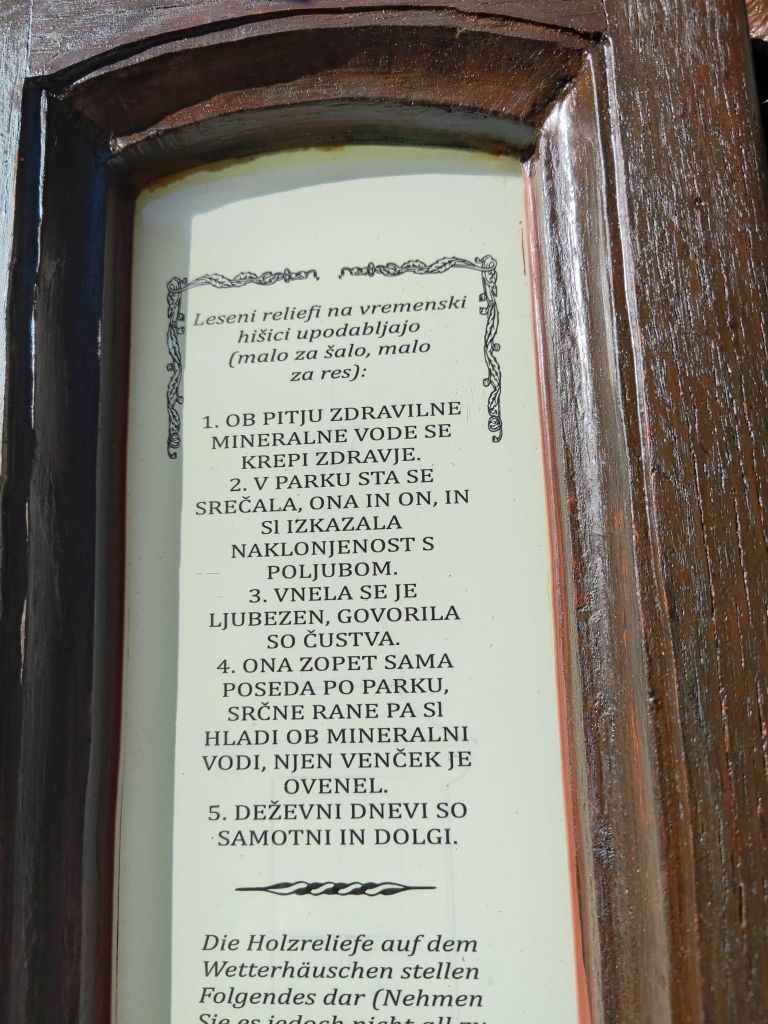 Leseni reliefi na vremenski
hišici upodabljajo
(malo za šalo, malo
za res):
1. OB PITJU ZDRAVILNE
MINERALNE VODE SE
KREPI ZDRAVJE.
2. V PARKU STA SE
SREČALA, ONA IN ON, IN
Sl IZKAZALA
NAKLONJENOST S
POLJUBOM.
3. VNELA SE JE
LJUBEZEN, GOVORILA
SO ČUSTVA.
4. ONA ZOPET SAMA
POSEDA PO PARKU,
SRČNE RANE PA Sl
HLADI OB MINERALNI
VODI, NJEN VENČEK JE
OVENEL.
5. DEŽEVNI DNEVI SO
SAMOTNI IN DOLGI.
Die Holzreliefe auf dem
Wetterhäuschen stellen
Folgendes dar (Nehmen
Sie es jedoch nicht all zu